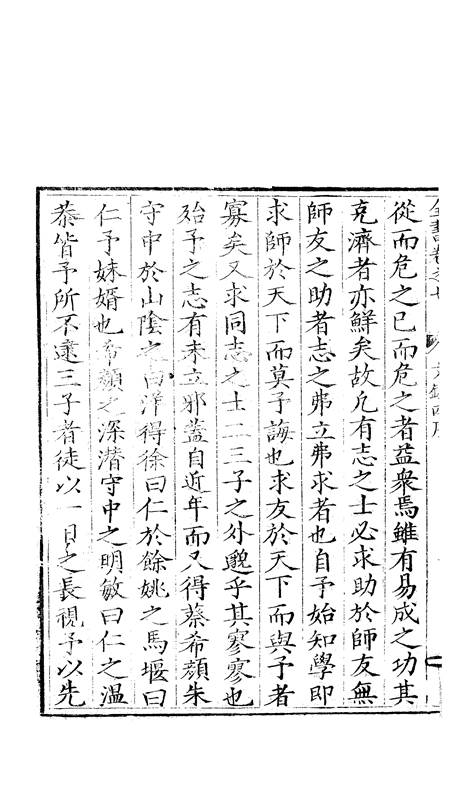 全書卷之七　文錄四序
從而危之已而危之者益衆焉雖有易成之功其
克濟者亦鮮矣故凡有志之士必求助於師友無
師友之助者志之弗立弗求者也自予始知學即
求師於天下而莫予誨也求友於天下而與予者
寡矣又求同志之士二三子之外邈乎其寥寥也
殆予之志有未立邪蓋自近年而又得蔡希顏朱
守中於山陰之白洋得徐曰仁於餘姚之馬堰曰
仁予妹婿也希顏之深潛守中之明敏曰仁之溫
恭皆予所不逮三子者徒以一日之長視予以先